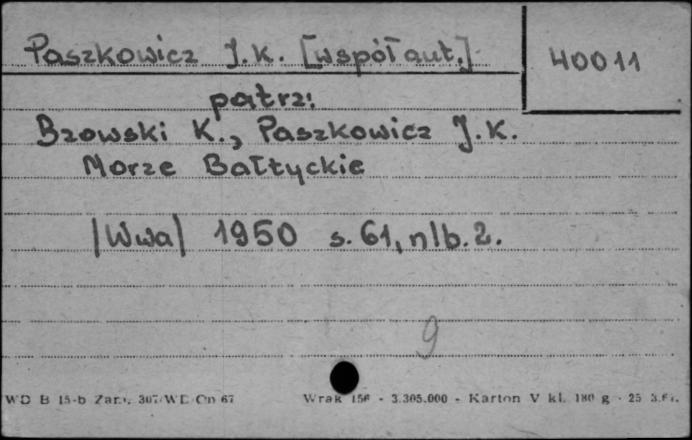 Paszkowicz J.K. [współaut.]
40011
patrz:
Bzowski K., Paszkowicz J.K.
Morze Bałtyckie
/Wwa/ 1950 s. 61, nlb. 2.
9
WD B 15-b Zam. 307/WD Cn 67
Wrak 156 - 3.305.000 - Karton V kl. 180 g - 25 3.67.